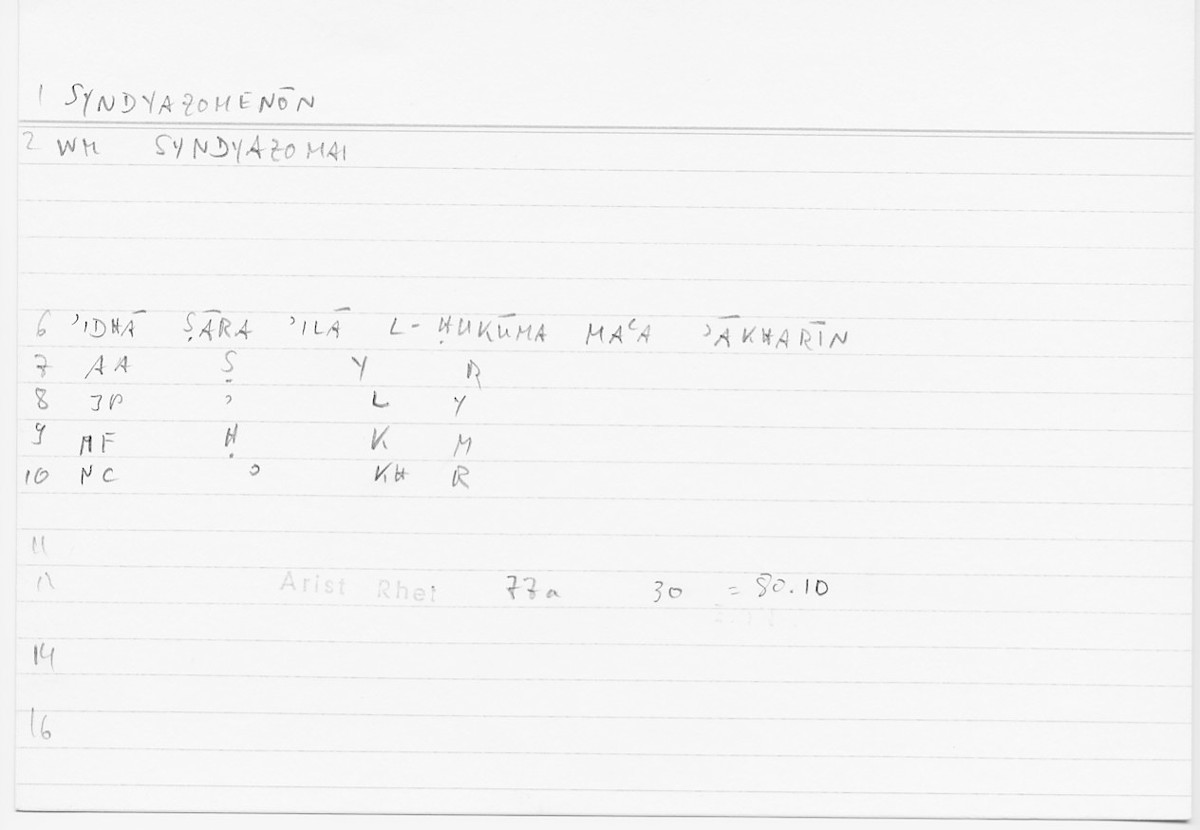 1 SYNDYAZOMENŌN
2 WM SYNDYAZOMAI
6 ʾIDHĀ ṢĀRA ʾILĀ L-ḤUKŪMA MAʿA ʾĀKHARĪN
7 AA Ṣ Y R
8 JP ʾ L Y
9 MF Ḥ K M
10 NC ʾ KH R
11
Arist Rhet 77a 30 = 80.10
14
16